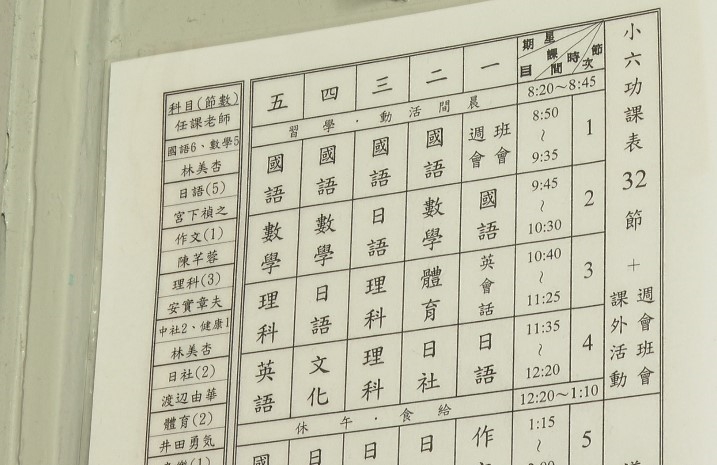 小六功課表 32 節 ＋ 週會班會 課外活動
星期 課目 時間 節次
一 二 三 四 五
8:20～8:45
晨間活動・學習
1 8:50～9:35 週會 班會 國語 國語 國語 國語
2 9:45～10:30 國語 數學 日語 數學 數學
3 10:40～11:25 英會話 體育 理科 日語 理科
4 11:35～12:20 日語 日社 理科 文化 英語
12:20～1:10
給食・午休
5 1:15～ 作 日 日 日 國
科目(節數)
任課老師
國語6、數學5
林美杏
日語(5)
宮下禎之
作文(1)
陳芊蓉
理科(3)
安實章夫
中社2、健康1
林美杏
日社(2)
渡辺由華
體育(2)
井田勇気